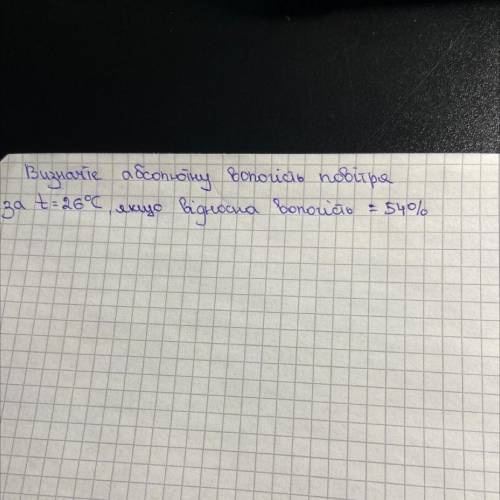 Визначте абсолютну вологість повітря
за t=26°C, якщо відносна вологість = 54%